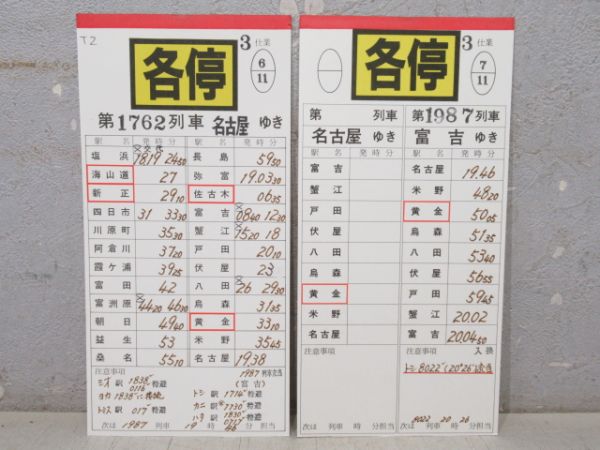 T2
各停
3仕業
6
11
第1762列車 名古屋 ゆき
駅名 発時分 駅名 発時分
塩浜 18.19 24 50 長島 59 50
海山道 27 弥富 19.03 30
新正 29 10 佐古木 06 35
四日市 31 33 30 富吉 08 40 12 20
川原町 35 30 蟹江 15 20 18
阿倉川 37 20 戸田 20 10
霞ケ浦 39 25 伏屋 23
富田 42 八田 26 29 30
富洲原 44 20 46 30 烏森 31 35
朝日 49 40 黄金 33 10
益生 53 米野 35 45
桑名 55 10 名古屋 19.38
注意事項
1987列車充当
(富吉)
駅 1838 待避
トシ駅 1716 待避
カニ駅 1730 待避
ハタ駅 1830
駅 017 待避
次は 1987 列車 19時 46分担当
各停
3仕業
7
11
第 列車
名古屋 ゆき
駅名 発時分
富吉
蟹江
戸田
伏屋
八田
烏森
黄金
米野
名古屋
注意事項
次は 列車 時 分担当
第1987列車
富吉 ゆき
駅名 発時分
名古屋 19.46
米野 48 20
黄金 50 05
烏森 51 35
八田 53 40
伏屋 56 55
戸田 59 45
蟹江 20.02
富吉 20.04 50
注意事項 入換
8022
次は 8022 列車 20時 26分担当